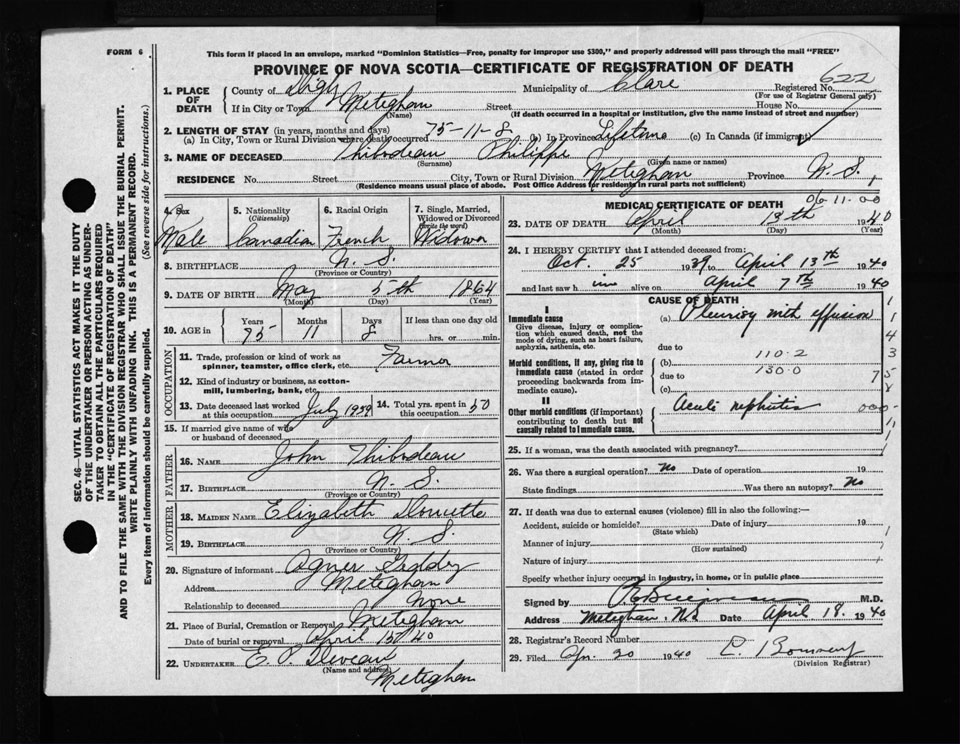 FORM 6
This form if placed in an envelope, marked "Dominion Statistics—Free, penalty for improper use $300," and properly addressed will pass through the mail "FREE"
PROVINCE OF NOVA SCOTIA—CERTIFICATE OF REGISTRATION OF DEATH
622
1. PLACE OF DEATH
County of Digby Municipality of Clare Registered No.
(For use of Registrar General only)
If in City or Town Meteghan Street House No.
(Name) (If death occurred in a hospital or institution, give the name instead of street and number)
2. LENGTH OF STAY (in years, months and days)
(a) In City, Town or Rural Division where death occurred 75-11-8 (b) In Province Lifetime (c) In Canada (if immigrant)
3. NAME OF DECEASED Thibodeau Philippe
(Surname) (Given name or names)
RESIDENCE No. Street City, Town or Rural Division Meteghan Province N. S.
(Residence means usual place of abode. Post Office Address for residents in rural parts not sufficient)
4. Sex Male
5. Nationality (Citizenship) Canadian
6. Racial Origin French
7. Single, Married, Widowed or Divorced (write the word) Widower
8. BIRTHPLACE N. S.
(Province or Country)
9. DATE OF BIRTH May 5th 1864
(Month) (Day) (Year)
10. AGE in Years Months Days If less than one day old
75 11 8 hrs. or min.
OCCUPATION
11. Trade, profession or kind of work as spinner, teamster, office clerk, etc. Farmer
12. Kind of industry or business, as cotton-mill, lumbering, bank, etc.
13. Date deceased last worked at this occupation July 1939
14. Total yrs. spent in this occupation 50
15. If married give name of wife or husband of deceased
FATHER
16. NAME John Thibodeau
17. BIRTHPLACE N. S.
(Province or Country)
MOTHER
18. MAIDEN NAME Elizabeth Doucette
19. BIRTHPLACE N. S.
(Province or Country)
20. Signature of informant
Address Meteghan
Relationship to deceased None
21. Place of Burial, Cremation or Removal Meteghan
Date of burial or removal April 15 40
22. UNDERTAKER E. P. Deveau
(Name and address) Meteghan
MEDICAL CERTIFICATE OF DEATH
06-11-00
23. DATE OF DEATH April 13th 1940
(Month) (Day) (Year)
24. I HEREBY CERTIFY that I attended deceased from:
Oct. 25 1939 to April 13th 1940
and last saw him alive on April 7th 1940
CAUSE OF DEATH
I
Immediate cause
Give disease, injury or complication which caused death, not the mode of dying, such as heart failure, asphyxia, asthenia, etc.
(a) Pleurisy with effusion
due to
Morbid conditions, if any, giving rise to immediate cause (stated in order proceeding backwards from immediate cause).
(b) 110.2
due to 130.0
(c)
II
Other morbid conditions (if important) contributing to death but not causally related to immediate cause.
Acute nephritis
25. If a woman, was the death associated with pregnancy?
26. Was there a surgical operation? No Date of operation 19
State findings Was there an autopsy? No
27. If death was due to external causes (violence) fill in also the following:—
Accident, suicide or homicide? Date of injury 19
(State which)
Manner of injury
(How sustained)
Nature of injury
Specify whether injury occurred in industry, in home, or in public place
Signed by M.D.
Address Meteghan, N.S Date April 18. 1940
28. Registrar's Record Number
29. Filed Apr. 20 1940
(Division Registrar)
SEC. 46—VITAL STATISTICS ACT MAKES IT THE DUTY
OF THE UNDERTAKER OR PERSON ACTING AS UNDER-
TAKER TO OBTAIN ALL THE PARTICULARS REQUIRED
IN THE "CERTIFICATE OF REGISTRATION OF DEATH"
AND TO FILE THE SAME WITH THE DIVISION REGISTRAR WHO SHALL ISSUE THE BURIAL PERMIT.
WRITE PLAINLY WITH UNFADING INK. THIS IS A PERMANENT RECORD.
Every item of information should be carefully supplied. (See reverse side for instructions.)